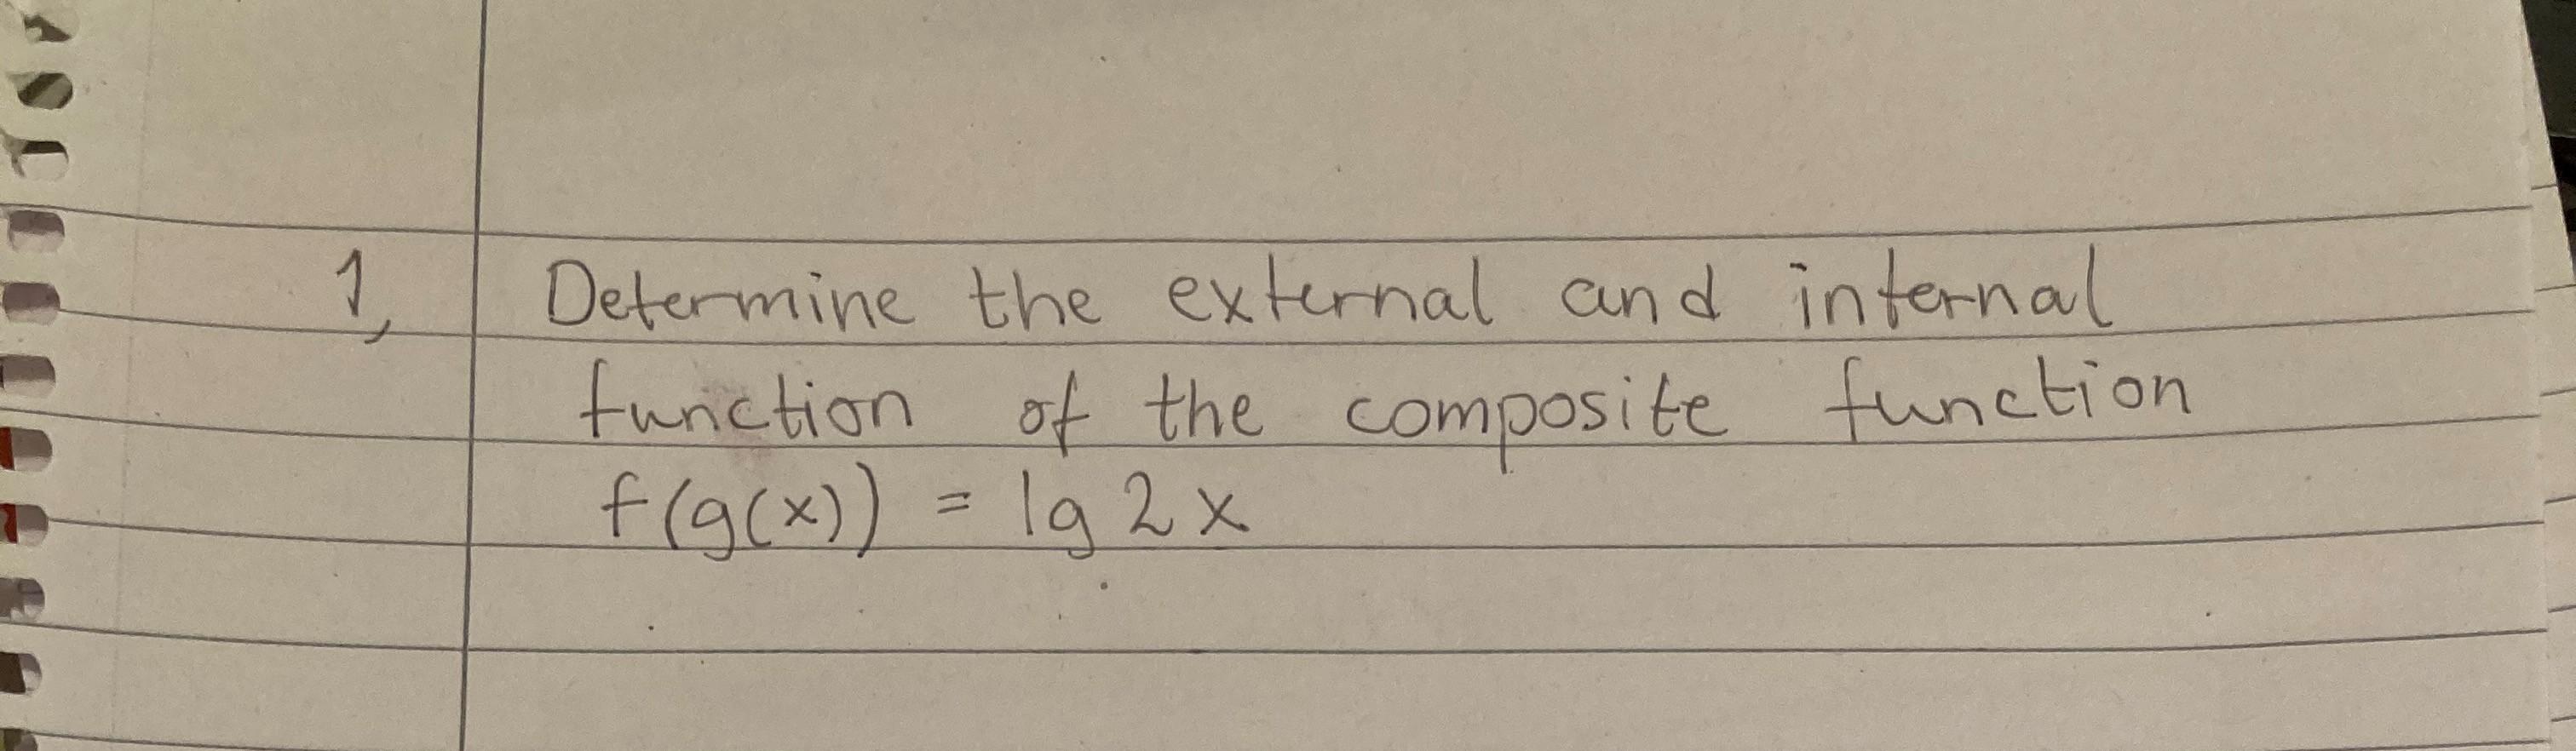 1, Determine the external and internal
function of the composite function
f(g(x)) = lg 2x